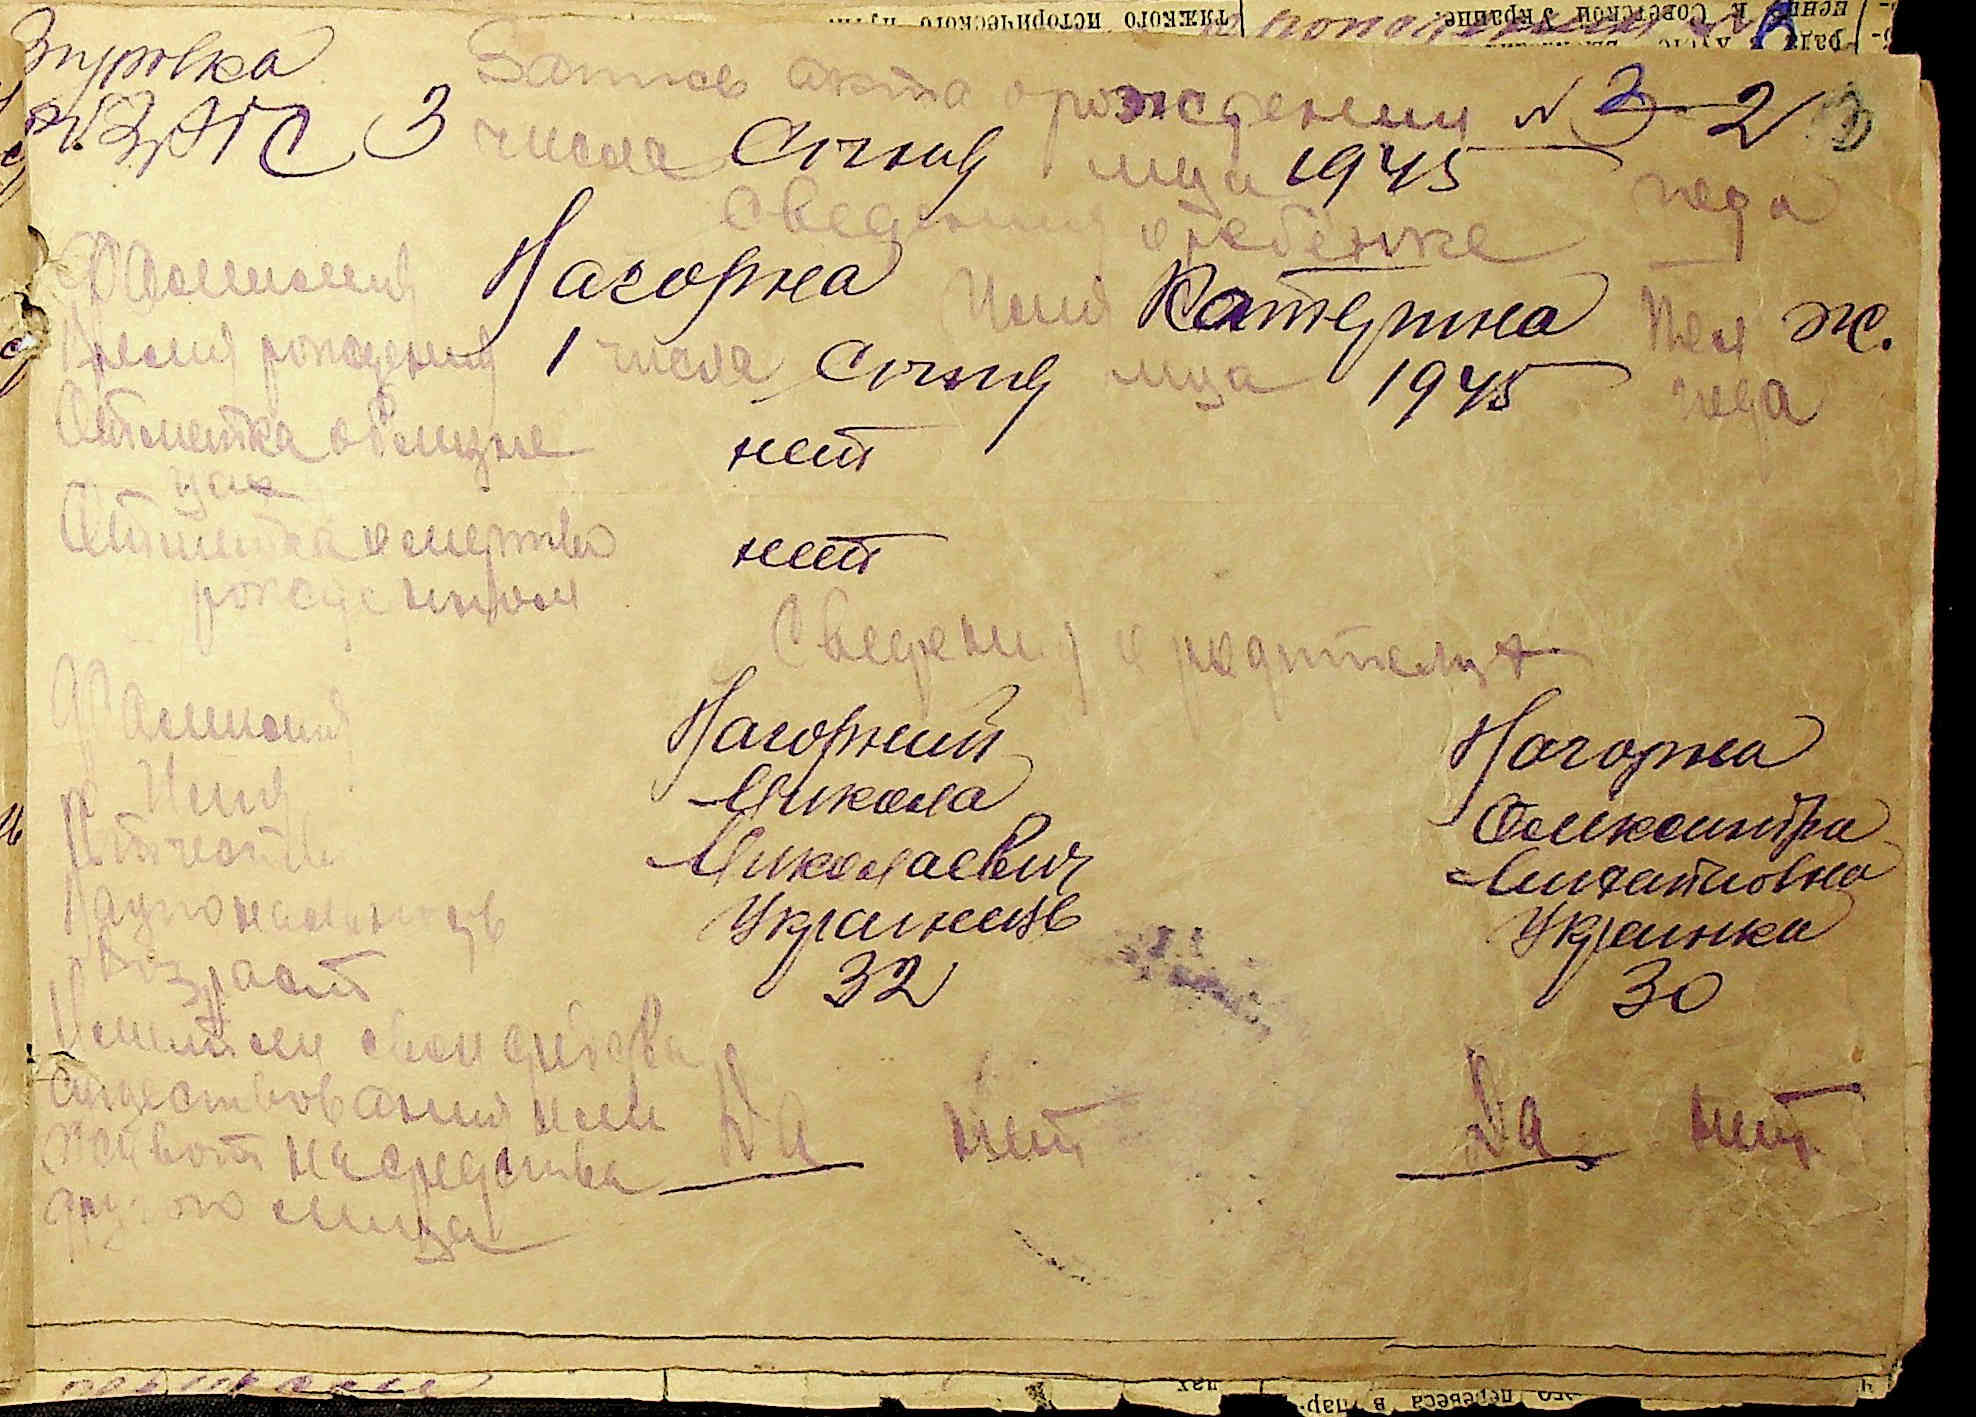 тяжкого исторического пути. нение к Советской Украине.
Згуровка
Запись акта о рождении № 3 2
ЗАГС 3 числа Січня м-ца 1945 года
Сведения о ребенке
Фамилия Нагорна Имя Катерина Пол ж.
Время рождения 1 числа Січня м-ца 1945 года
Отметка о близне
цах нет
Отметка о мертво
рожденном нет
Сведения о родителях
Фамилия Нагорний Нагорна
Имя Микола Олександра
Отчество Миколаевич
Национальность Українець Українка
Возраст 32 30
Имеет ли свои средства
существования или Да нет Да нет
живет на средства
другого лица